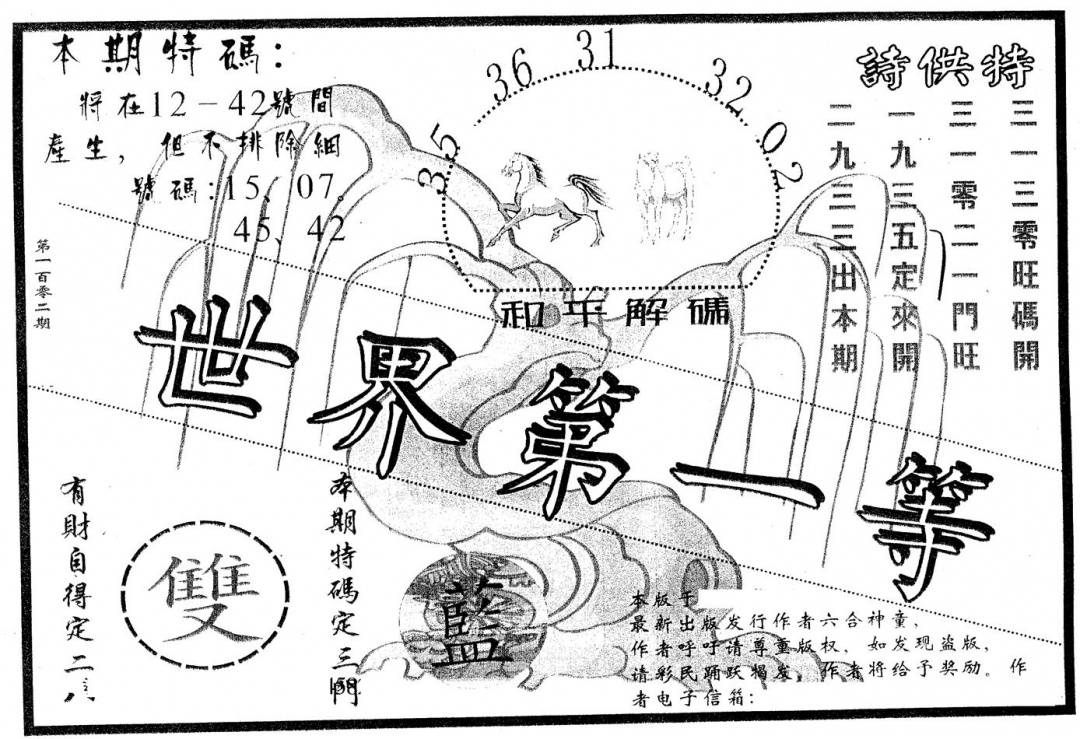 本期特碼:
將在12-42號間
產生,但不排除細
號碼:15、07、
45、42
第一百零二期
35
36
31
32
02
和平解碼
特供詩
三一三零旺碼開
三一零二一門旺
一九三五定來開
二九三三出本期
世界第一等
有財自得定二八
雙
本期特碼定三門
藍
本版于
最新出版发行作者六合神童,
作者呼吁请尊重版权,如发现盗版,
请彩民踊跃揭发,作者将给予奖励。作
者电子信箱: